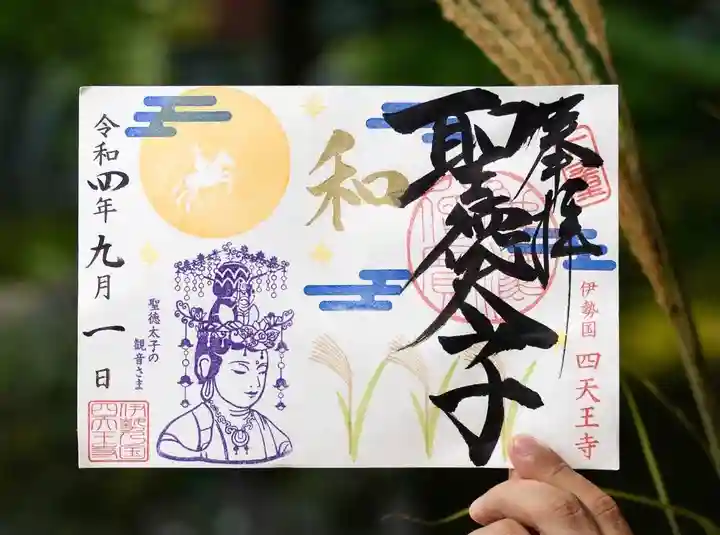 奉拝
聖徳太子
伊勢国 四天王寺
和
聖徳太子の
観音さま
令和四年九月一日
伊勢国
四天王寺